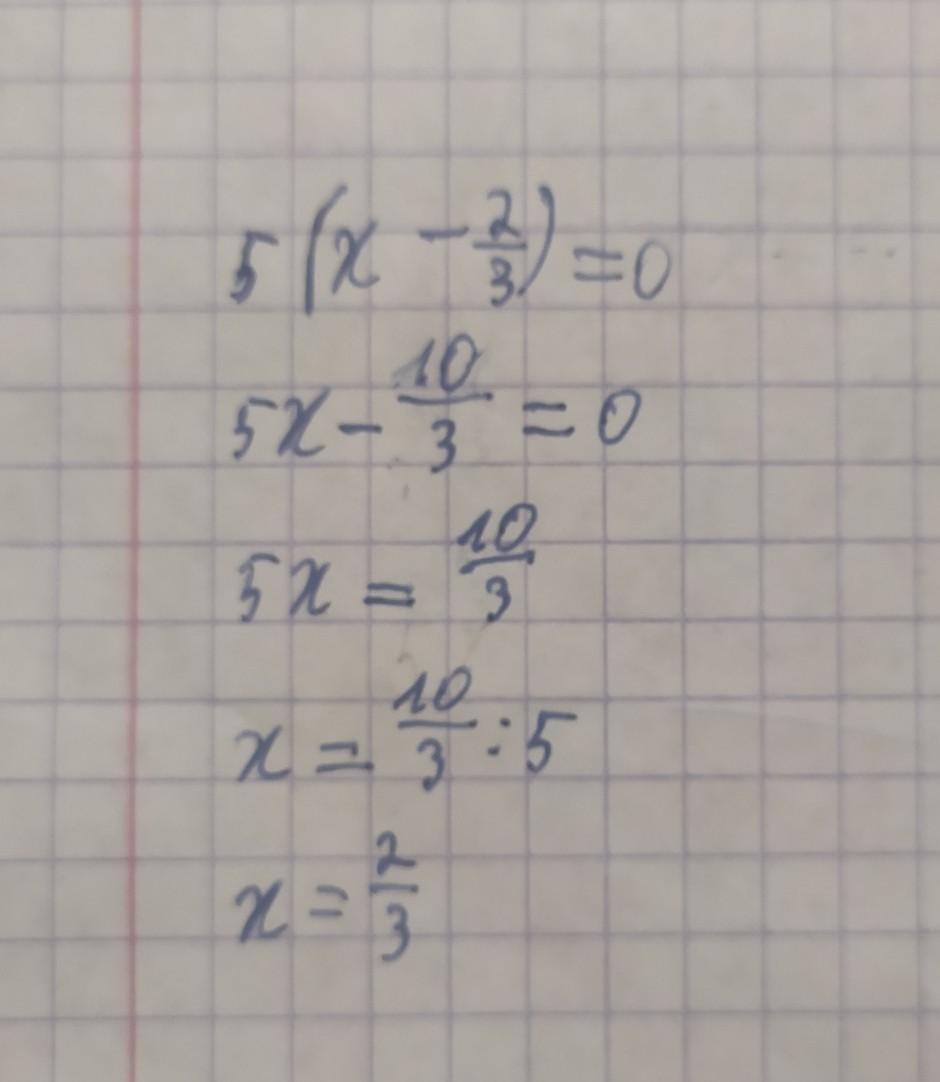 5(x - 2/3) = 0
5x - 10/3 = 0
5x = 10/3
x = 10/3 : 5
x = 2/3